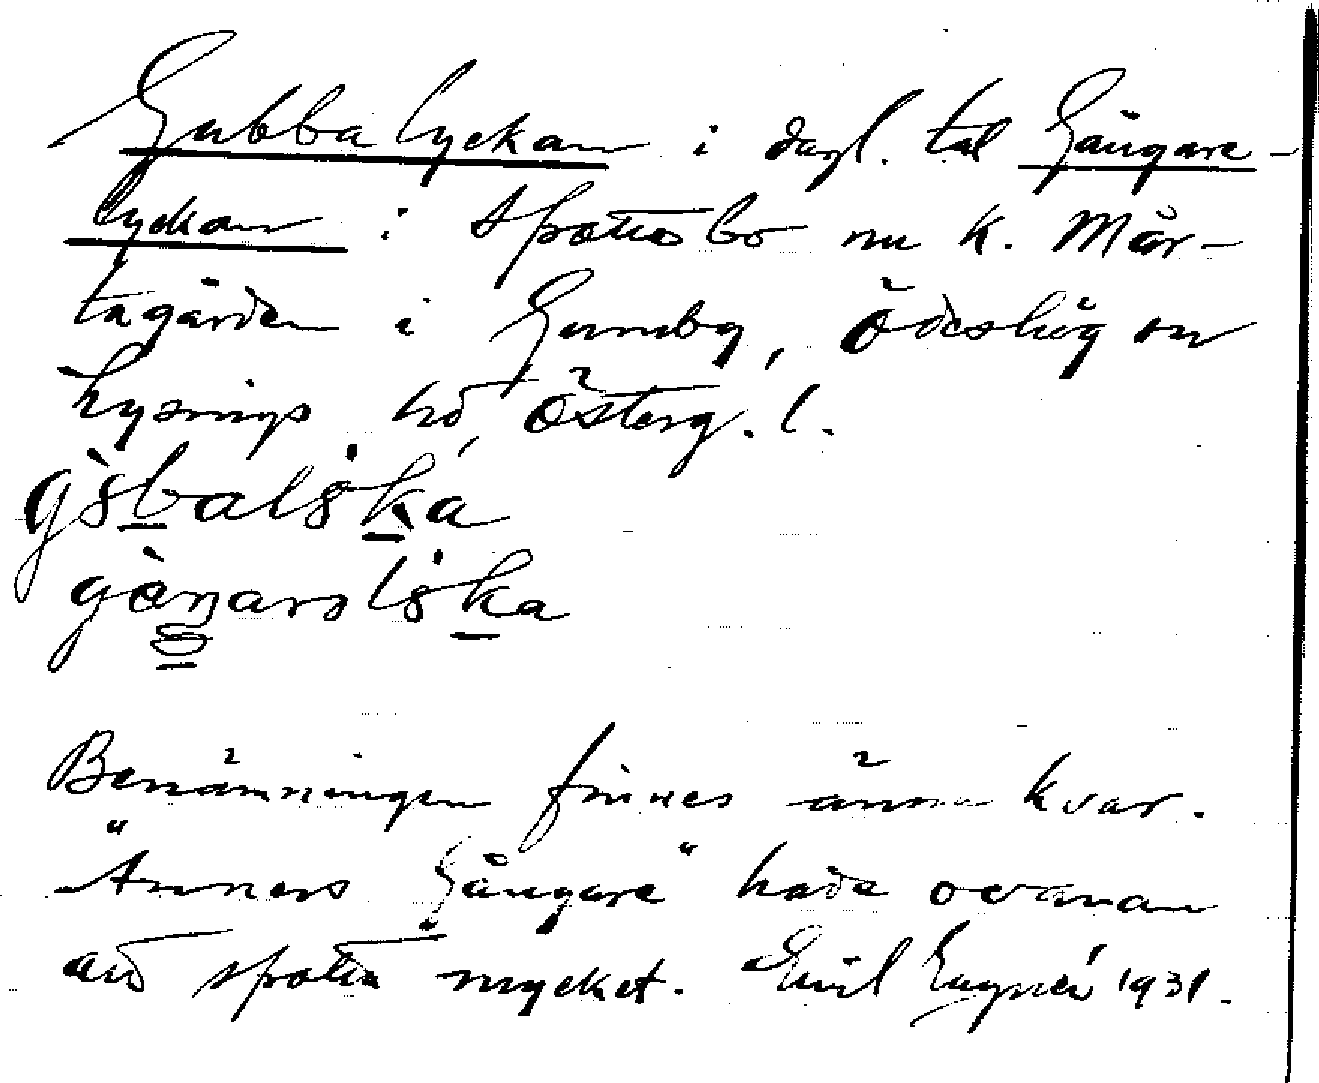 Gubbalyckan i dagl. tal Gångare-
lyckan i Spottesbo nu k. Mår-
tagården i Gumby, Ödeshög sn
Lysings hd, Österg. l.
Benämningen finnes ännu kvar.
"Anners Gångare" hade ovanan
att spotta mycket. Emil 1931.